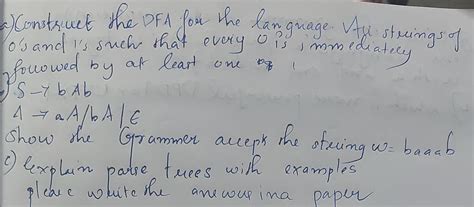 a) Construct the DFA for the language. All strings of
0's and 1's such that every 0 is immediately
followed by at least one 1
S → bAb
A → aA/bA|ε
Show the Grammer accepts the string w= baaab
c) Explain parse trees with examples
please write the answers in a paper